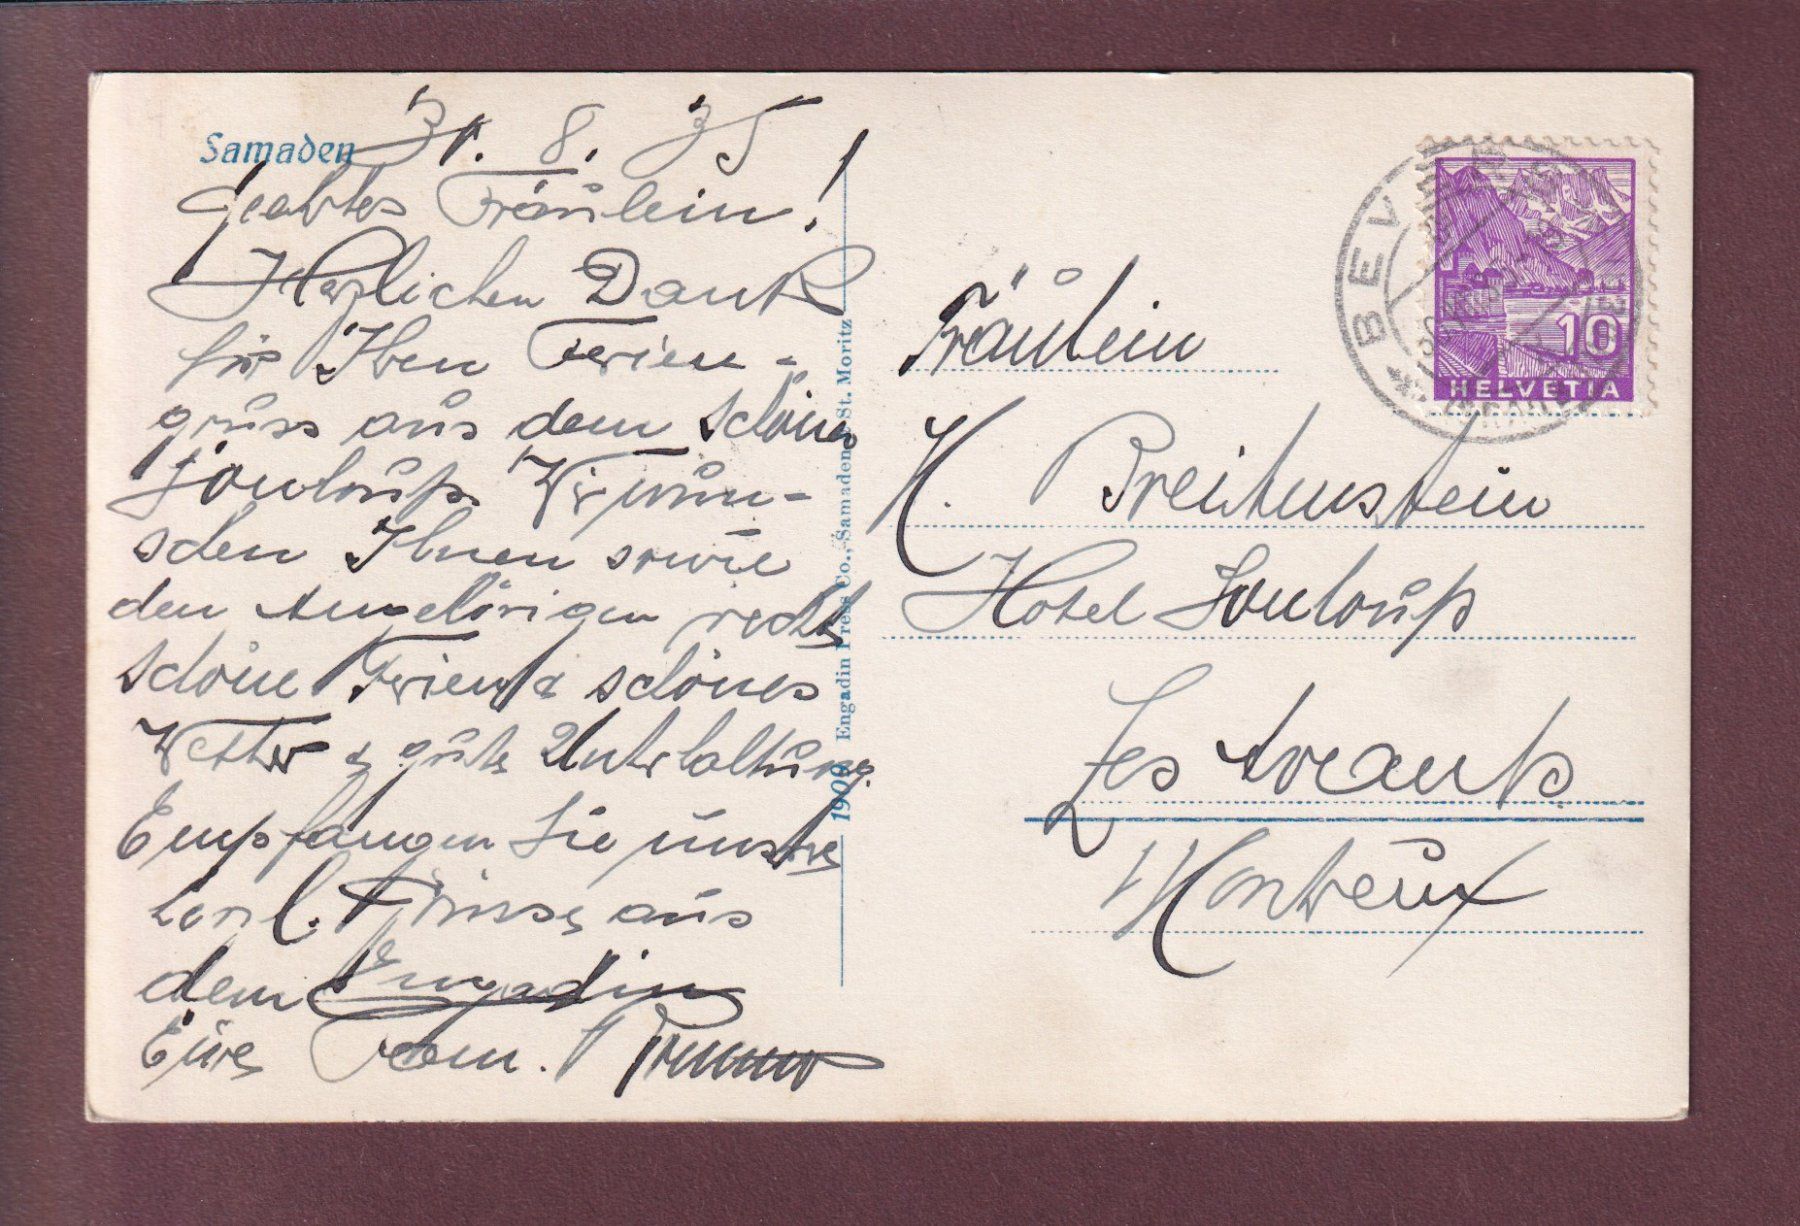 Samaden 31. 8. 35
Geehrtes Fräulein!
Herzlichen Dank
für Ihren Ferien-
gruss aus dem schönen
Sonloup. Wir wün-
schen Ihnen sowie
den Angehörigen recht
schöne Ferien & schönes
Wetter & gute Unterhaltung.
Empfangen Sie unsere
herzl. Grüsse aus
dem Engadin
Eure Fam.
1909 Engadin Press Co., Samaden-St. Moritz
BEVER
10
HELVETIA
Fräulein
H. Breitenstein
Hotel Sonloup
Les Avants
Montreux